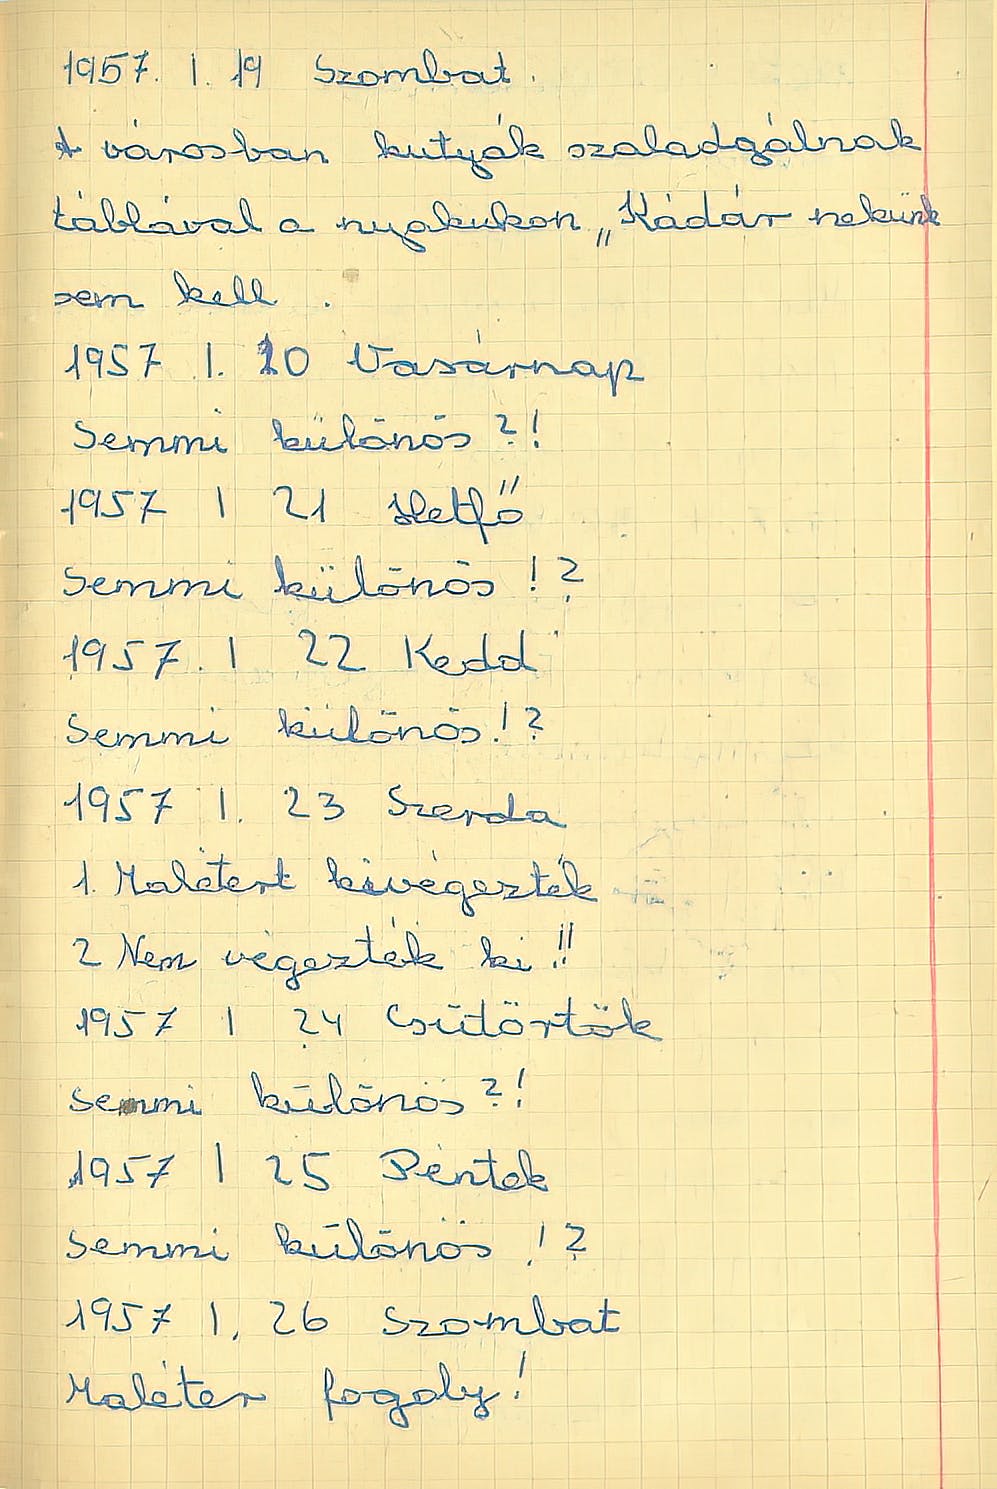 1957. I. 19 Szombat.
A városban kutyák szaladgálnak
táblával a nyakukon „Kádár nekünk
sem kell .
1957 I. 20 Vasárnap
Semmi különös ?!
1957 I 21 Hetfő
Semmi különös !?
1957. I 22 Kedd
Semmi különös!?
1957 I. 23 Szerda
1. Malétert kivégezték
2 Nem végezték ki!!
1957 I 24 Csütörtök
Semmi különös?!
1957 I 25 Péntek
Semmi különös !?
1957 I. 26 Szombat
Maléter fogoly!